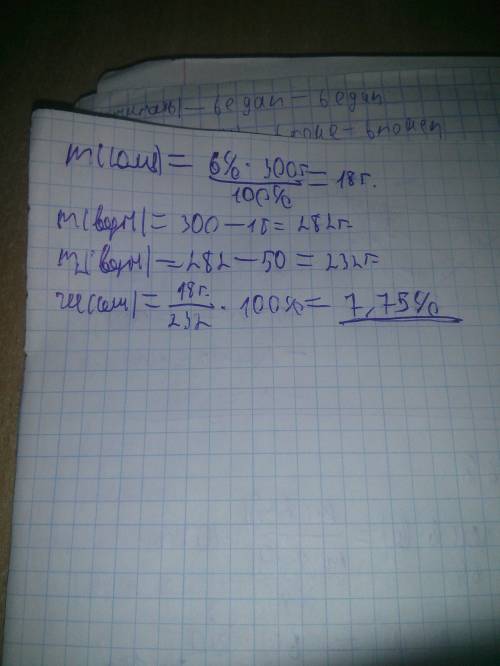 – ведап – ведап
m(соли) = 6% · 300г / 100% = 18г.
m(воды) = 300 – 18 = 282г
m2(воды) = 282 – 50 = 232г
(соли) = 18г. / 232 · 100% = 7,75%